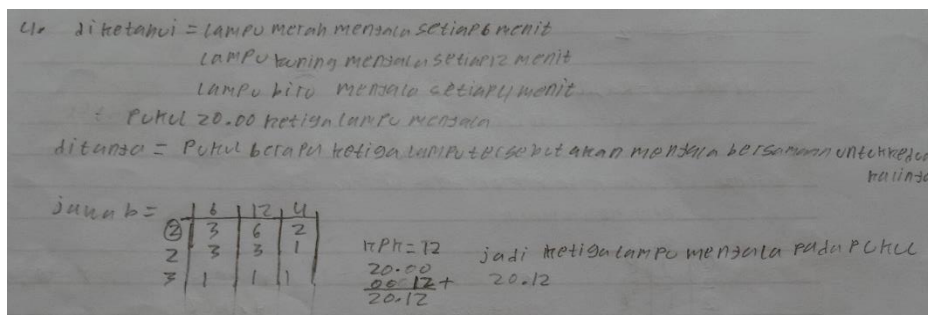 4. diketahui = lampu merah menyala setiap 6 menit
lampu kuning menyala setiap 12 menit
lampu biru menyala setiap 4 menit
: Pukul 20.00 ketiga lampu menyala
ditanya = Pukul berapa ketiga lampu tersebut akan menyala bersamaan untuk kedua
kalinya
jawab =
6 12 4
2 3 6 2
2 3 3 1
3 1 1 1
KPK = 12
20.00
00 12 +
20.12
jadi ketiga lampu menyala pada pukul
20.12